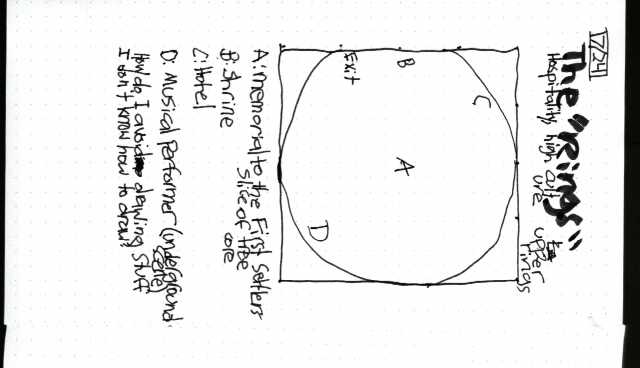 7/24
The "Rings"
Hospitality, high cult
ure
upper
rings
C
B
A
Exit
D
A: memorial to the First Settlers
slice of tree
core
B: Shrine
C: Hotel
D: Musical Performer (underground
scene)
How do I avoid drawing stuff
I don't know how to draw?